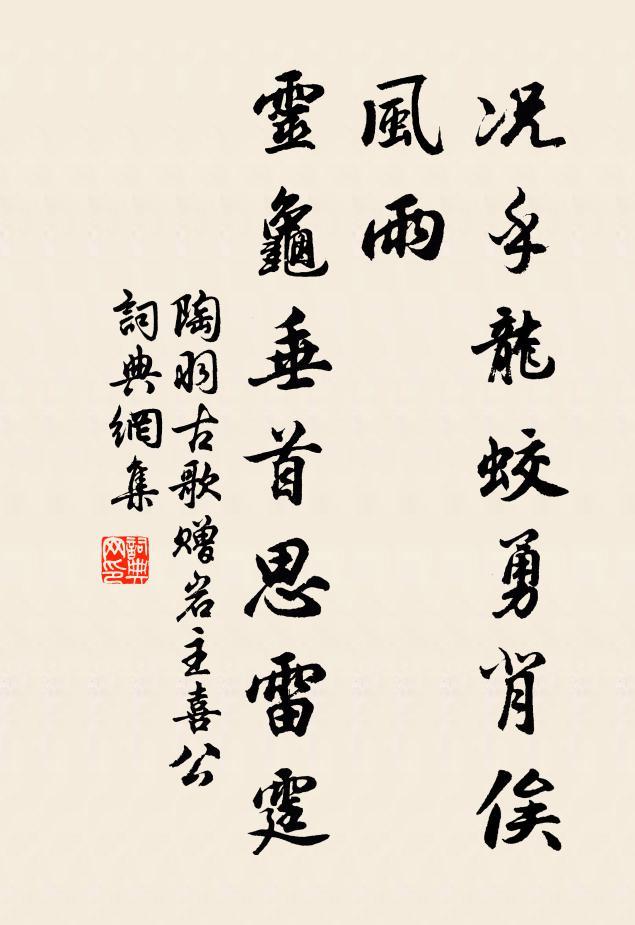 况乎龍蛟勇背俟
風雨
靈龜垂首思雷霆
陶羽古歌贈岩主喜公
詞典網集
詞典网印